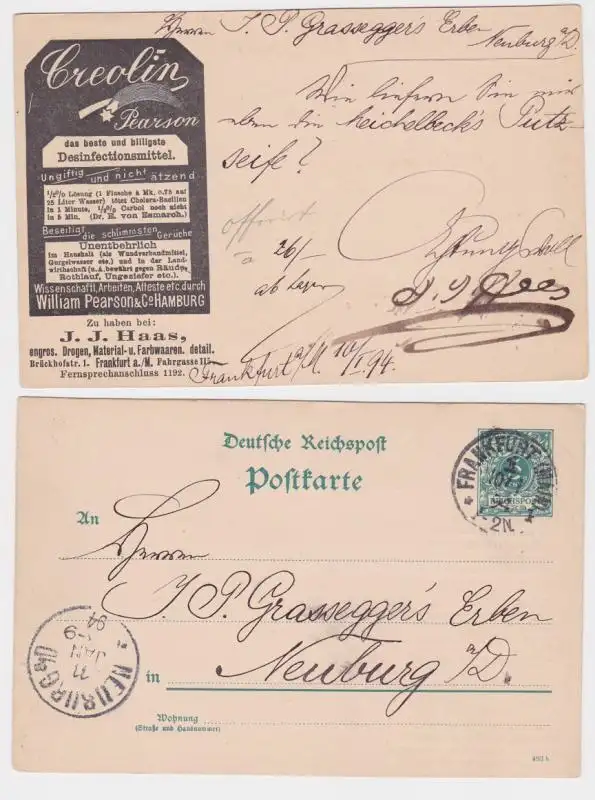 Creolin
Pearson
das beste und billigste
Desinfectionsmittel.
Ungiftig und nicht ätzend
½% Lösung (1 Flasche à Mk. 0.75 auf
25 Liter Wasser) tötet Cholera-Bacillen
in 1 Minute, ½% Carbol noch nicht
in 5 Min. (Dr. E. von Esmarch.)
Beseitigt die schlimmsten Gerüche
Unentbehrlich
im Haushalt (als Wundverbandmittel,
Gurgelwasser etc.) und in der Land-
wirthschaft (u.A. bewährt gegen Räude,
Rothlauf, Ungeziefer etc.)
Wissenschaftl. Arbeiten, Atteste etc. durch
William Pearson & Co HAMBURG
Zu haben bei:
J. J. Haas,
engros. Drogen, Material- u. Farbwaaren. detail.
Brückhofstr. 1. Frankfurt a./M. Fahrgasse 115
Fernsprechanschluss 1192.
Herren J. P. Grassegger's Erben
Neuburg a/D.
Wie liefern Sie mir
eben die Reichelbeck's Putz-
seife?
offerirt
à 26/-
ab Lager
J. J. Haas
Frankfurt a/M. 10/I. 94.
Deutsche Reichspost
Postkarte
FRANKFURT (MAIN)
REICHSPOST
1-2N.
An
Herren
J. P. Grassegger's Erben
in Neuburg a/D.
NEUBURG a/D
11
JAN
94
Wohnung
(Straße und Hausnummer)
493 b